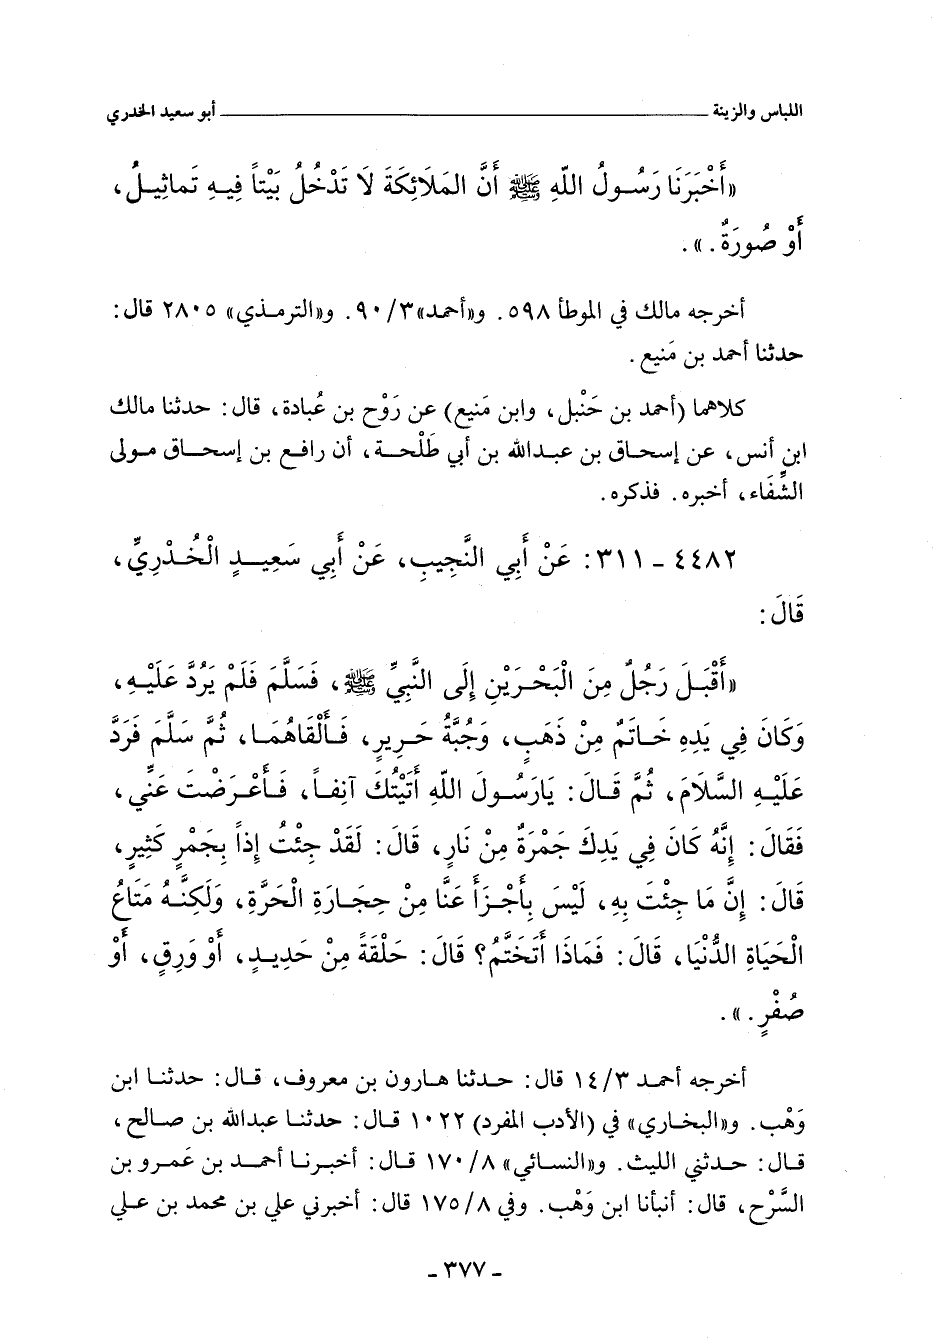 اللباس والزينة ــــــــــــــــ أبو سعيد الخدري
«أَخْبَرَنَا رَسُولُ اللّهِ ﷺ أَنَّ المَلَائِكَةَ لَا تَدْخُلُ بَيْتاً فِيهِ تَماثِيلُ،
أَوْ صُورَةٌ.».
أخرجه مالك في الموطأ ٥٩٨. و«أحمد»٩٠/٣. و«الترمـذي» ٢٨٠٥ قال:
حدثنا أحمد بن مَنيع.
كلاهما (أحمد بن حَنْبل، وابن مَنيع) عن رَوْح بن عُبادة، قال: حدثنا مالك
ابن أنس، عن إسحاق بن عبدالله بن أبي طَلْحـة، أن رافـع بن إسحـاق مولى
الشِّفَاء، أخبره. فذكره.
٤٤٨٢ - ٣١١: عَنْ أَبِي النَّجِيبِ، عَنْ أَبِي سَعِيدٍ الْخُدْرِيِّ،
قَالَ:
«أَقْبَلَ رَجُلٌ مِنَ الْبَحْرَيْنِ إِلَى النَّبِيِّ ﷺ، فَسَلَّمَ فَلَمْ يَرُدَّ عَلَيْهِ،
وَكَانَ فِي يَدِهِ خَاتَمٌ مِنْ ذَهَبٍ، وَجُبَّةُ حَرِيرٍ، فَأَلْقَاهُمَا، ثُمَّ سَلَّمَ فَرَدَّ
عَلَيْهِ السَّلَامَ، ثُمَّ قَالَ: يَارَسُولَ اللّهِ أَتَيْتُكَ آنِفاً، فَأَعْرَضْتَ عَنِّي،
فَقَالَ: إِنَّهُ كَانَ فِي يَدِكَ جَمْرَةٌ مِنْ نَارٍ، قَالَ: لَقَدْ جِئْتُ إِذاً بِجَمْرٍ كَثِيرٍ،
قَالَ: إِنَّ مَا جِئْتَ بِهِ، لَيْسَ بِأَجْزَأَ عَنَّا مِنْ حِجَارَةِ الْحَرَّةِ، وَلَكِنَّهُ مَتَاعُ
الْحَيَاةِ الدُّنْيَا، قَالَ: فَمَاذَا أَتَخَتَّمُ؟ قَالَ: حَلْقَةً مِنْ حَدِيدٍ، أَوْ وَرِقٍ، أَوْ
صُفْرٍ.».
أخرجه أحمد ١٤/٣ قال: حدثنا هارون بن معروف، قال: حدثنا ابن
وَهْب. و«البخاري» في (الأدب المفرد) ١٠٢٢ قال: حدثنا عبدالله بن صالح،
قال: حدثني الليث. و«النسائي» ١٧٠/٨ قال: أخبرنا أحمد بن عَمرو بن
السَّرْح، قال: أنبأنا ابن وَهْب. وفي ١٧٥/٨ قال: أخبرني علي بن محمد بن علي
- ٣٧٧ -